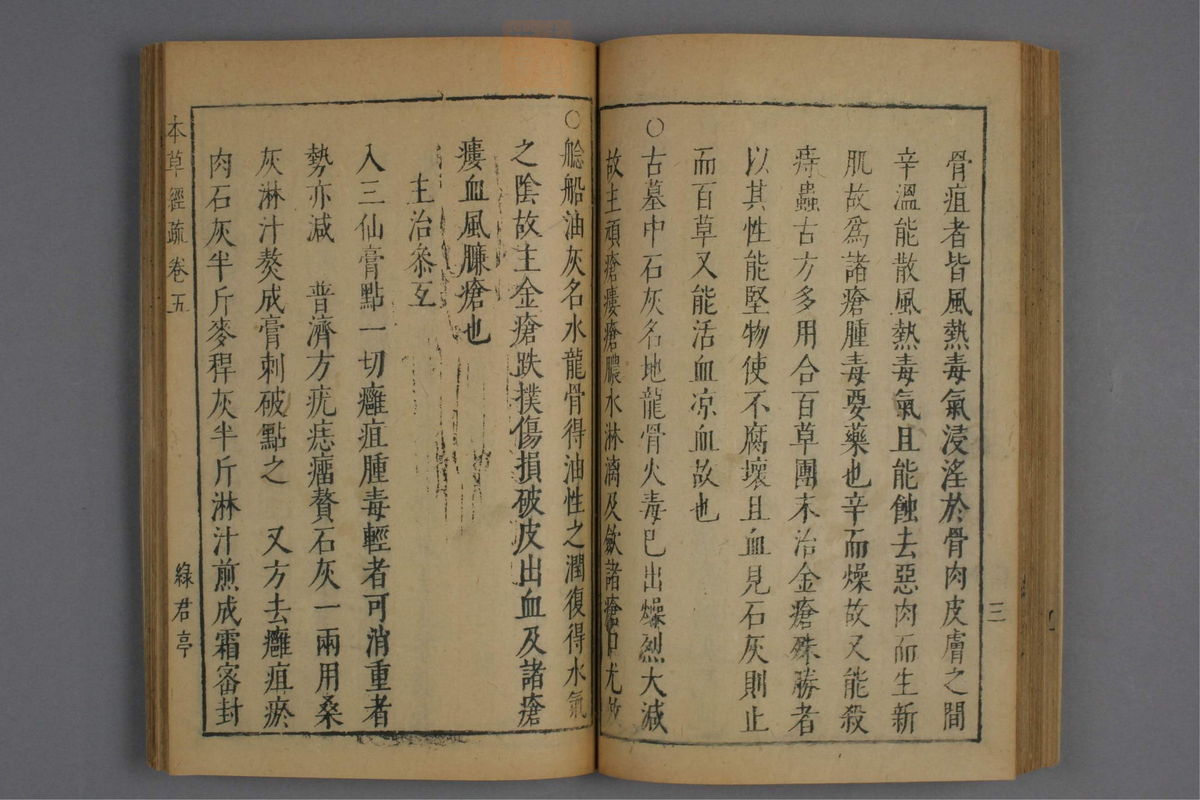 骨疽者皆風熱毒氣浸淫於骨肉皮膚之間
辛溫能散風熱毒氣且能蝕去惡肉而生新
肌故爲諸瘡腫毒要藥也辛而燥故又能殺
痔蟲古方多用合百草團末治金瘡殊勝者
以其性能堅物使不腐壞且血見石灰則止
而百草又能活血凉血故也
〇古墓中石灰名地龍骨火毒已出燥烈大減
故主頑瘡瘻瘡膿水淋漓及歛諸瘡口尤妙
三
〇艌船油灰名水龍骨得油性之潤復得水氣
之陰故主金瘡跌撲傷損破皮出血及諸瘡
瘻血風臁瘡也
主治叅互
入三仙膏點一切癰疽腫毒輕者可消重者
勢亦減 普濟方疣痣瘤贅石灰一兩用桑
灰淋汁熬成膏刺破點之 又方去癰疽瘀
肉石灰半斤麥稈灰半斤淋汁煎成霜密封
本草經疏卷五
綠君亭